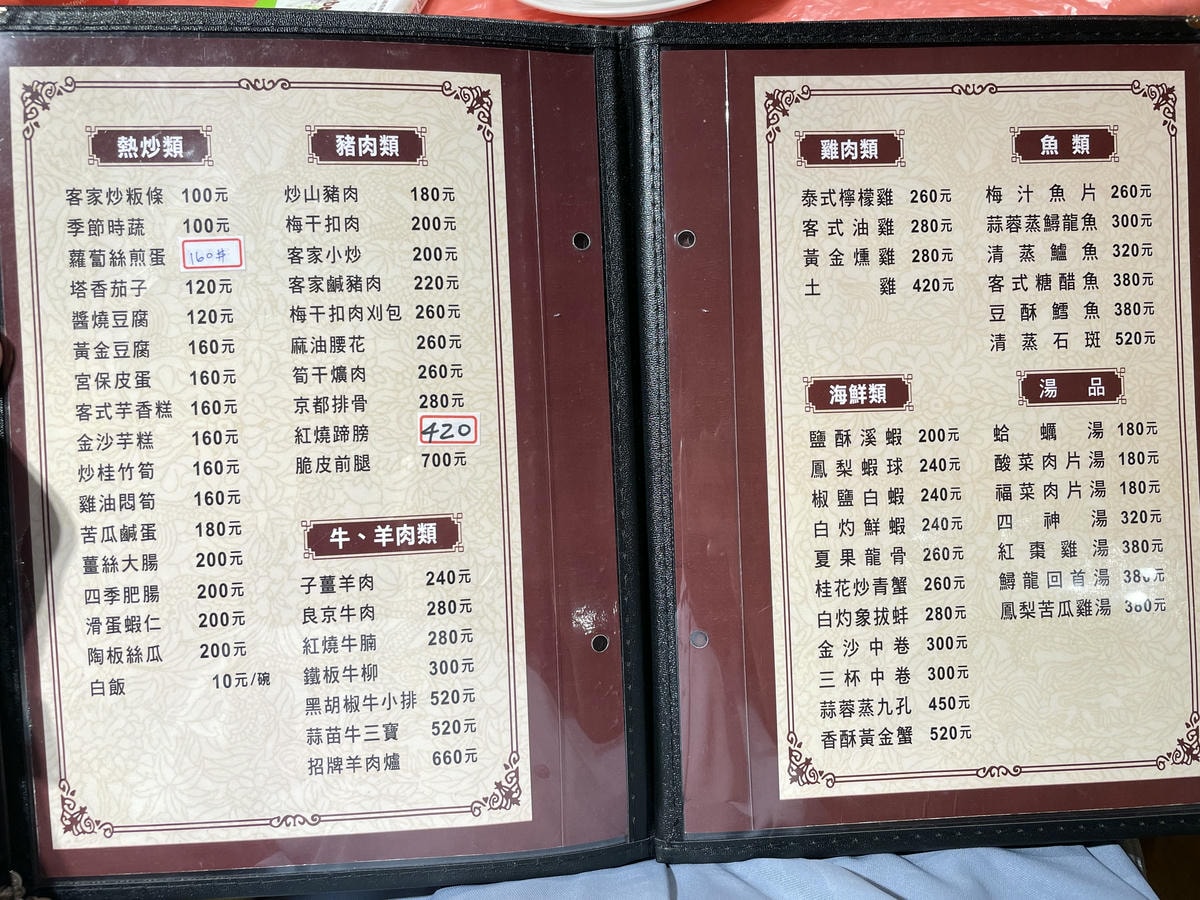 熱炒類
客家炒粄條 100元
季節時蔬 100元
蘿蔔絲煎蛋 160#
塔香茄子 120元
醬燒豆腐 120元
黃金豆腐 160元
宮保皮蛋 160元
客式芋香糕 160元
金沙芋糕 160元
炒桂竹筍 160元
雞油悶筍 160元
苦瓜鹹蛋 180元
薑絲大腸 200元
四季肥腸 200元
滑蛋蝦仁 200元
陶板絲瓜 200元
白飯 10元/碗
豬肉類
炒山豬肉 180元
梅干扣肉 200元
客家小炒 200元
客家鹹豬肉 220元
梅干扣肉刈包 260元
麻油腰花 260元
筍干爌肉 260元
京都排骨 280元
紅燒蹄膀 420
脆皮前腿 700元
牛、羊肉類
子薑羊肉 240元
良京牛肉 280元
紅燒牛腩 280元
鐵板牛柳 300元
黑胡椒牛小排 520元
蒜苗牛三寶 520元
招牌羊肉爐 660元
雞肉類
泰式檸檬雞 260元
客式油雞 280元
黃金燻雞 280元
土雞 420元
海鮮類
鹽酥溪蝦 200元
鳳梨蝦球 240元
椒鹽白蝦 240元
白灼鮮蝦 240元
夏果龍骨 260元
桂花炒青蟹 260元
白灼象拔蚌 280元
金沙中卷 300元
三杯中卷 300元
蒜蓉蒸九孔 450元
香酥黃金蟹 520元
魚類
梅汁魚片 260元
蒜蓉蒸鱘龍魚 300元
清蒸鱸魚 320元
客式糖醋魚 380元
豆酥鱈魚 380元
清蒸石斑 520元
湯品
蛤蠣湯 180元
酸菜肉片湯 180元
福菜肉片湯 180元
四神湯 320元
紅棗雞湯 380元
鱘龍回首湯 380元
鳳梨苦瓜雞湯 380元